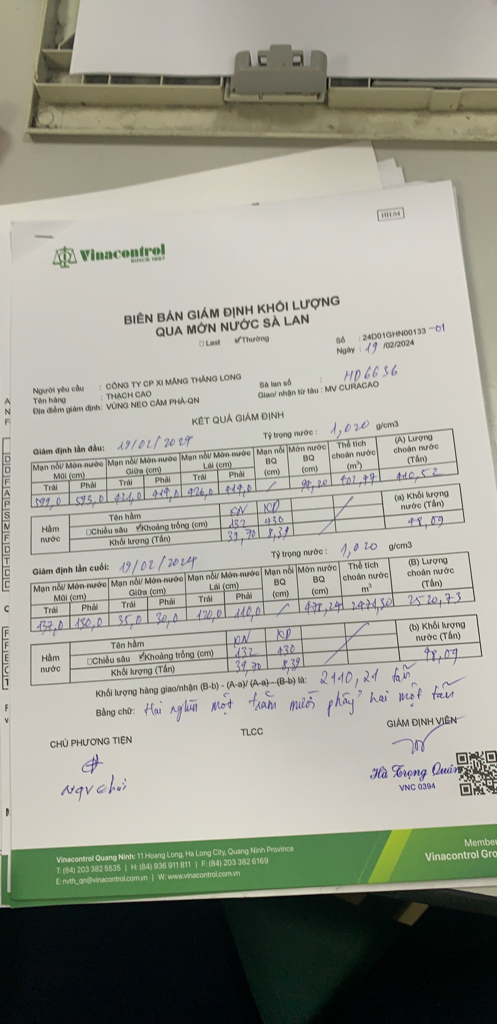 HH.04
Vinacontrol
SINCE 1957
BIÊN BẢN GIÁM ĐỊNH KHỐI LƯỢNG
QUA MỚN NƯỚC SÀ LAN
Last Thường
Số : 24D01GHN00133 -01
Ngày : 19 /02/2024
Người yêu cầu : CÔNG TY CP XI MĂNG THĂNG LONG
Sà lan số : HD6636
Tên hàng : THẠCH CAO
Giao/ nhận từ tàu : MV CURACAO
Địa điểm giám định: VÙNG NEO CẨM PHẢ-QN
KẾT QUẢ GIÁM ĐỊNH
Giám định lần đầu: 19/02/2024 Tỷ trọng nước : 1,020 g/cm3
Mạn nổi/ Mớn nước Mũi (cm) Mạn nổi/ Mớn nước Giữa (cm) Mạn nổi/ Mớn nước Lái (cm) Mạn nổi BQ (cm) Mớn nước BQ (cm) Thể tích choán nước (m³) (A) Lượng choán nước (Tấn)
Trái Phải Trái Phải Trái Phải
419,0 419,0 410,52
Hầm nước Tên hầm KN KP (a) Khối lượng nước (Tấn)
Chiều sâu Khoảng trống (cm) 132 430
Khối lượng (Tấn) 39,70 8,39 48,09
Giám định lần cuối: 19/02/2024 Tỷ trọng nước : 1,020 g/cm3
Mạn nổi/ Mớn nước Mũi (cm) Mạn nổi/ Mớn nước Giữa (cm) Mạn nổi/ Mớn nước Lái (cm) Mạn nổi BQ (cm) Mớn nước BQ (cm) Thể tích choán nước m³ (B) Lượng choán nước (Tấn)
Trái Phải Trái Phải Trái Phải
137,0 130,0 35,0 30,0 120,0 110,0 2471,30 2520,73
Hầm nước Tên hầm KN KP (b) Khối lượng nước (Tấn)
Chiều sâu Khoảng trống (cm) 132 430
Khối lượng (Tấn) 39,70 8,39 48,09
Khối lượng hàng giao/nhận (B-b) - (A-a)/ (A-a) - (B-b) là: 2110,21 tấn
Bằng chữ: Hai nghìn một trăm mười phẩy hai một tấn
CHỦ PHƯƠNG TIỆN TLCC GIÁM ĐỊNH VIÊN
Hà Trọng Quân
VNC 0394
Vinacontrol Quang Ninh: 11 Hoang Long, Ha Long City, Quang Ninh Province
T: (84) 203 382 5535 | H: (84) 936 911 811 | F: (84) 203 382 6169
E: nvth_qn@vinacontrol.com.vn | W: www.vinacontrol.com.vn
Membe
Vinacontrol Gro